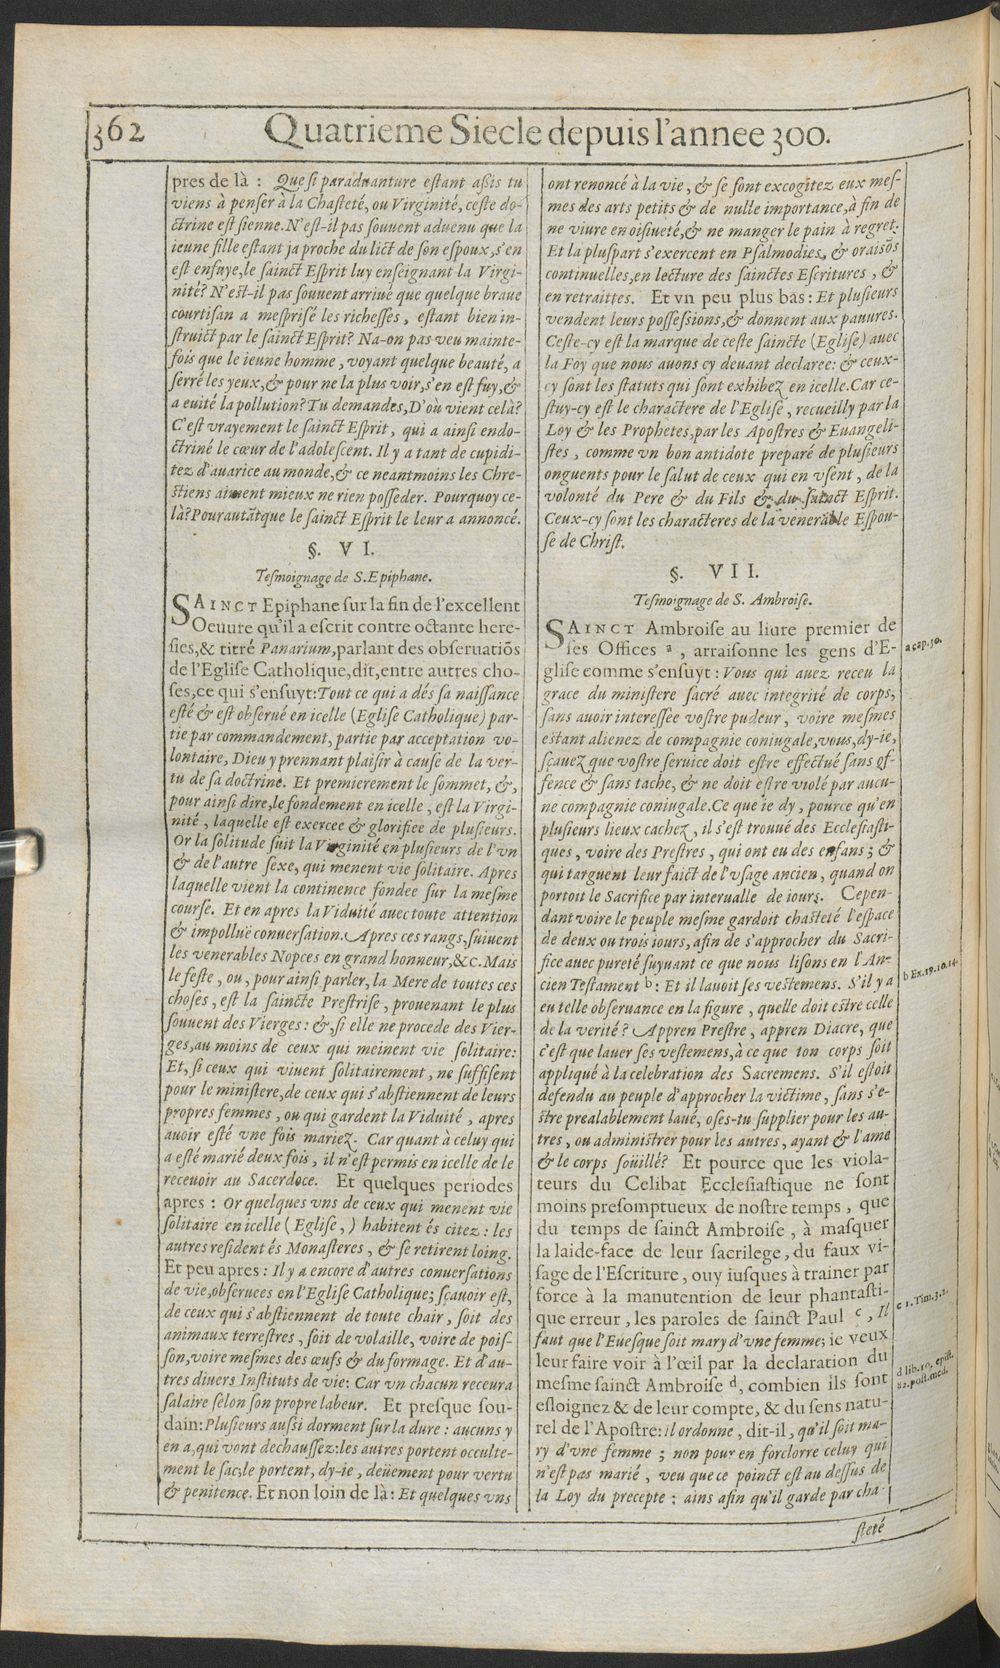 362 Quatrieme Siecle depuis l'annee 300.
pres de là : Que si paraduanture estant assis tu
viens à penser à la Chasteté, ou Virginité, ceste do-
ctrine est sienne. N'est-il pas souuent aduenu que la
ieune fille estant ja proche du lict de son espoux, s'en
est enfuye, le sainct Esprit luy enseignant la Virgi-
nité? N'est-il pas souuent arriué que quelque braue
courtisan a mesprisé les richesses, estant bien in-
struict par le sainct Esprit? Na-on pas veu mainte-
fois que le ieune homme, voyant quelque beauté, a
serré les yeux, & pour ne la plus voir, s'en est fuy, &
a euité la pollution? Tu demandes, D'où vient celà?
C'est vrayement le sainct Esprit, qui a ainsi endo-
ctriné le cœur de l'adolescent. Il y a tant de cupidi-
tez d'auarice au monde, & ce neantmoins les Chre-
stiens aiment mieux ne rien posseder. Pourquoy ce-
là? Pourautãt que le sainct Esprit le leur a annoncé.
§. VI.
Tesmoignage de S. Epiphane.
SAINCT Epiphane sur la fin de l'excellent
Oeuure qu'il a escrit contre octante here-
sies, & titré Panarium, parlant des obseruatiõs
de l'Eglise Catholique, dit, entre autres cho-
ses, ce qui s'ensuyt: Tout ce qui a dés sa naissance
esté & est obserué en icelle (Eglise Catholique) par-
tie par commandement, partie par acceptation vo-
lontaire, Dieu y prennant plaisir à cause de la ver-
tu de sa doctrine. Et premierement le sommet, &,
pour ainsi dire, le fondement en icelle, est la Virgi-
nité, laquelle est exercee & glorifiee de plusieurs.
Or la solitude suit la Virginité en plusieurs de l'vn
& de l'autre sexe, qui menent vie solitaire. Apres
laquelle vient la continence fondee sur la mesme
course. Et en apres la Viduité auec toute attention
& impolluë conuersation. Apres ces rangs, suiuent
les venerables Nopces en grand honneur, &c. Mais
le feste, ou, pour ainsi parler, la Mere de toutes ces
choses, est la saincte Prestrise, prouenant le plus
souuent des Vierges: &, si elle ne procede des Vier-
ges, au moins de ceux qui meinent vie solitaire:
Et, si ceux qui viuent solitairement, ne suffisent
pour le ministere, de ceux qui s'abstiennent de leurs
propres femmes, ou qui gardent la Viduité, apres
auoir esté vne fois mariez. Car quant à celuy qui
a esté marié deux fois, il n'est permis en icelle de le
receuoir au Sacerdoce. Et quelques periodes
apres : Or quelques vns de ceux qui menent vie
solitaire en icelle (Eglise,) habitent és citez : les
autres resident és Monasteres, & se retirent loing.
Et peu apres : Il y a encore d'autres conuersations
de vie, obseruees en l'Eglise Catholique; sçauoir est,
de ceux qui s'abstiennent de toute chair, soit des
animaux terrestres, soit de volaille, voire de pois-
son, voire mesmes des œufs & du formage. Et d'au-
tres diuers Instituts de vie: Car vn chacun receura
salaire selon son propre labeur. Et presque sou-
dain: Plusieurs aussi dorment sur la dure : aucuns y
en a, qui vont dechaussez: les autres portent occulte-
ment le sac; le portent, dy-ie, deüement pour vertu
& penitence. Et non loin de là: Et quelques vns
ont renoncé à la vie, & se sont excogitez eux mes-
mes des arts petits & de nulle importance, à fin de
ne viure en oisiueté, & ne manger le pain à regret.
Et la pluspart s'exercent en Psalmodies, & oraisõs
continuelles, en lecture des sainctes Escritures, &
en retraittes. Et vn peu plus bas: Et plusieurs
vendent leurs possessions, & donnent aux pauures.
Ceste-cy est la marque de ceste saincte (Eglise) auec
la Foy que nous auons cy deuant declaree: & ceux-
cy sont les statuts qui sont exhibez en icelle. Car ce-
stuy-cy est le charactere de l'Eglise, recueilly par la
Loy & les Prophetes, par les Apostres & Euangeli-
stes, comme vn bon antidote preparé de plusieurs
onguents pour le salut de ceux qui en vsent, de la
volonté du Pere & du Fils & du sainct Esprit.
Ceux-cy sont les characteres de la venerable Espou-
se de Christ.
§. VII.
Tesmoignage de S. Ambroise.
SAINCT Ambroise au liure premier de
ses Offices a, arraisonne les gens d'E-
glise comme s'ensuyt: Vous qui auez receu la
grace du ministere sacré auec integrité de corps,
sans auoir interessee vostre pudeur, voire mesmes
estant alienez de compagnie coniugale, vous, dy-ie,
sçauez que vostre seruice doit estre effectué sans of-
fence & sans tache, & ne doit estre violé par aucu-
ne compagnie coniugale. Ce que ie dy, pource qu'en
plusieurs lieux cachez, il s'est trouué des Ecclesiasti-
ques, voire des Prestres, qui ont eu des enfans; &
qui targuent leur faict de l'vsage ancien, quand on
portoit le Sacrifice par interualle de iours. Cepen-
dant voire le peuple mesme gardoit chasteté l'espace
de deux ou trois iours, afin de s'approcher du Sacri-
fice auec pureté suyuant ce que nous lisons en l'An-
cien Testament b: Et il lauoit ses vestemens. S'il y a
eu telle obseruance en la figure, quelle doit estre celle
de la verité? Appren Prestre, appren Diacre, que
c'est que lauer ses vestemens, à ce que ton corps soit
appliqué à la celebration des Sacremens. S'il estoit
defendu au peuple d'approcher la victime, sans s'e-
stre prealablement laué, oses-tu supplier pour les au-
tres, ou administrer pour les autres, ayant & l'ame
& le corps soüillé? Et pource que les viola-
teurs du Celibat Ecclesiastique ne sont
moins presomptueux de nostre temps, que
du temps de sainct Ambroise, à masquer
la laide-face de leur sacrilege, du faux vi-
sage de l'Escriture, ouy iusques à trainer par
force à la manutention de leur phantasti-
que erreur, les paroles de sainct Paul c, Il
faut que l'Euesque soit mary d'vne femme; ie veux
leur faire voir à l'œil par la declaration du
mesme sainct Ambroise d, combien ils sont
esloignez & de leur compte, & du sens natu-
rel de l'Apostre: Il ordonne, dit-il, qu'il soit ma-
ry d'vne femme ; non pour en forclorre celuy qui
n'est pas marié, veu que ce poinct est au dessus de
la Loy du precepte : ains afin qu'il garde par cha-
steté
a cap. 50.
b Ex. 19. 10. 14.
c 1. Tim. 3. 2.
d lib. 10. epist.
82. post. med.